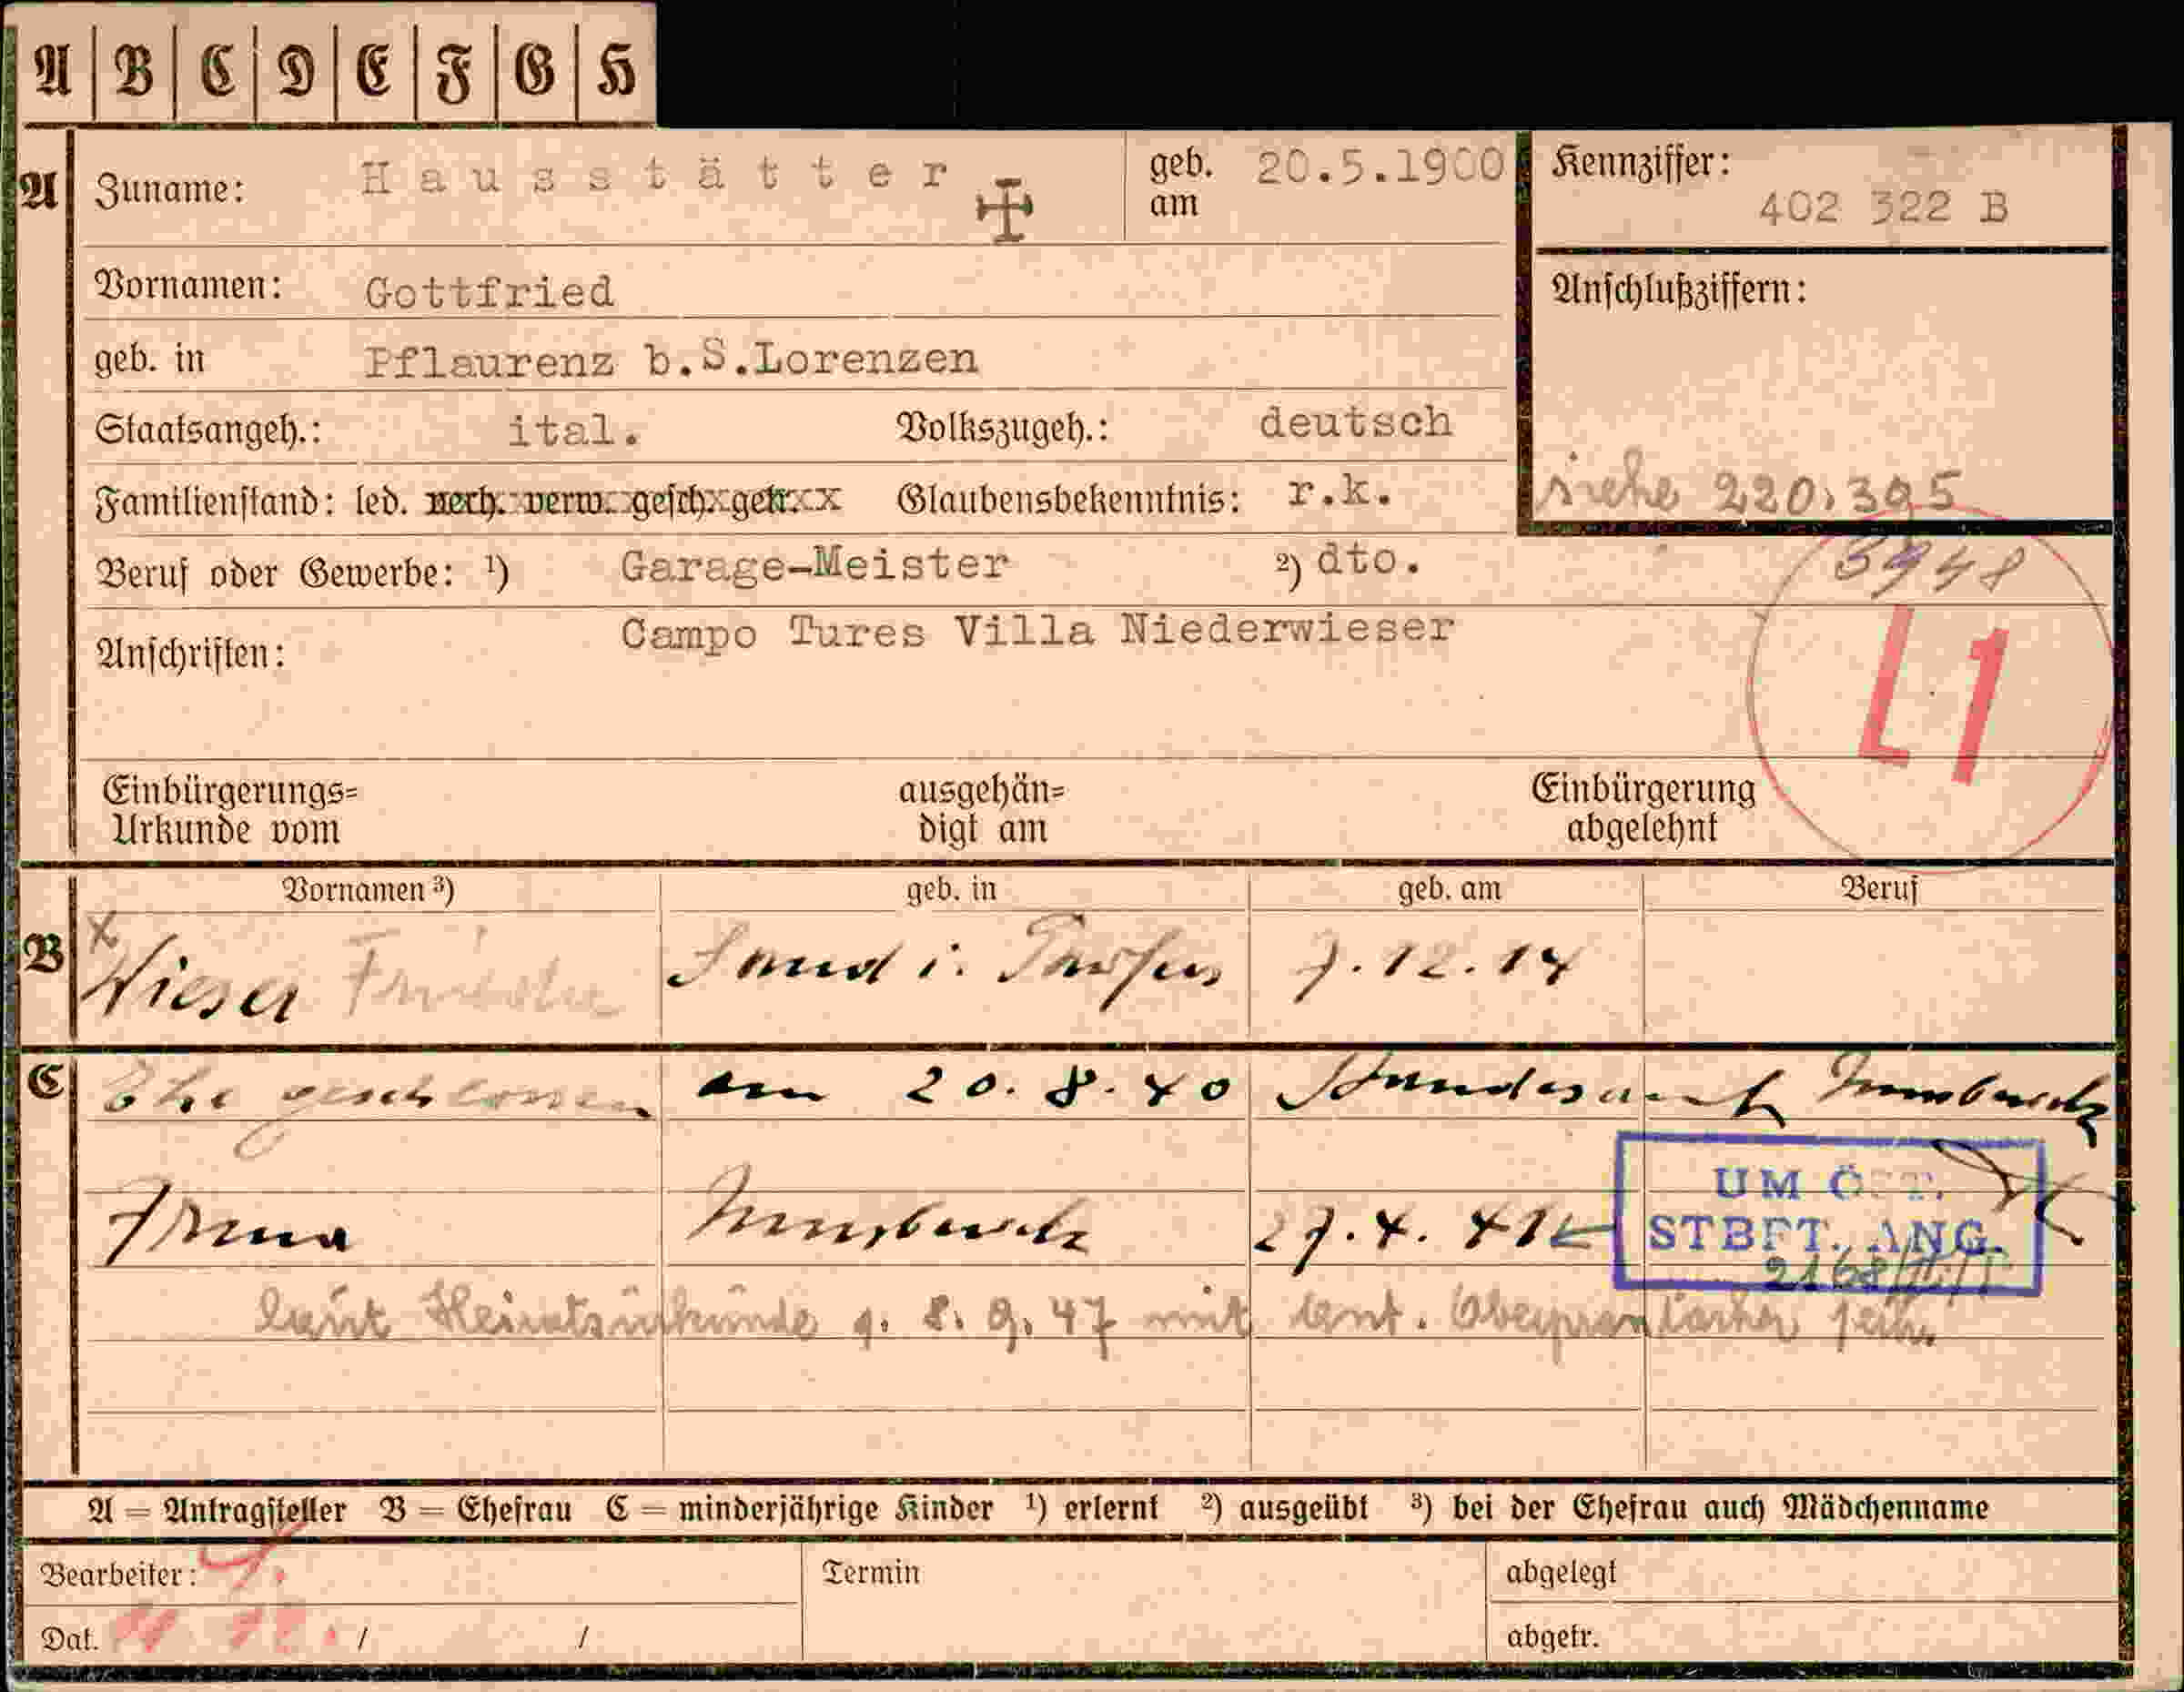 A B C D E F G H
A Zuname: Hausstätter geb. am 20.5.1900 Kennziffer: 402 322 B
Vornamen: Gottfried Anschlußziffern:
geb. in Pflaurenz b.S.Lorenzen
Staatsangeh.: ital. Volkszugeh.: deutsch
siehe 220,395
Familienstand: led. verh. verw. gesch. getr. Glaubensbekenntnis: r.k.
3948
Beruf oder Gewerbe: ¹) Garage-Meister ²) dto.
Anschriften: Campo Tures Villa Niederwieser
L1
Einbürgerungs= ausgehän= Einbürgerung
Urkunde vom digt am abgelehnt
Vornamen ³) geb. in geb. am Beruf
B x Wieser Sand i. Taufers 7.12.14
C Ehe geschlossen am 20.8.40 Standesamt Innsbruck
UM ÖST.
Irma Innsbruck 27.4.41 STBFT. ANG.
laut Heiratsurkunde v. 8. 9. 47 mit
A = Antragsteller B = Ehefrau C = minderjährige Kinder ¹) erlernt ²) ausgeübt ³) bei der Ehefrau auch Mädchenname
Bearbeiter: Termin abgelegt
Dat. / / abgetr.